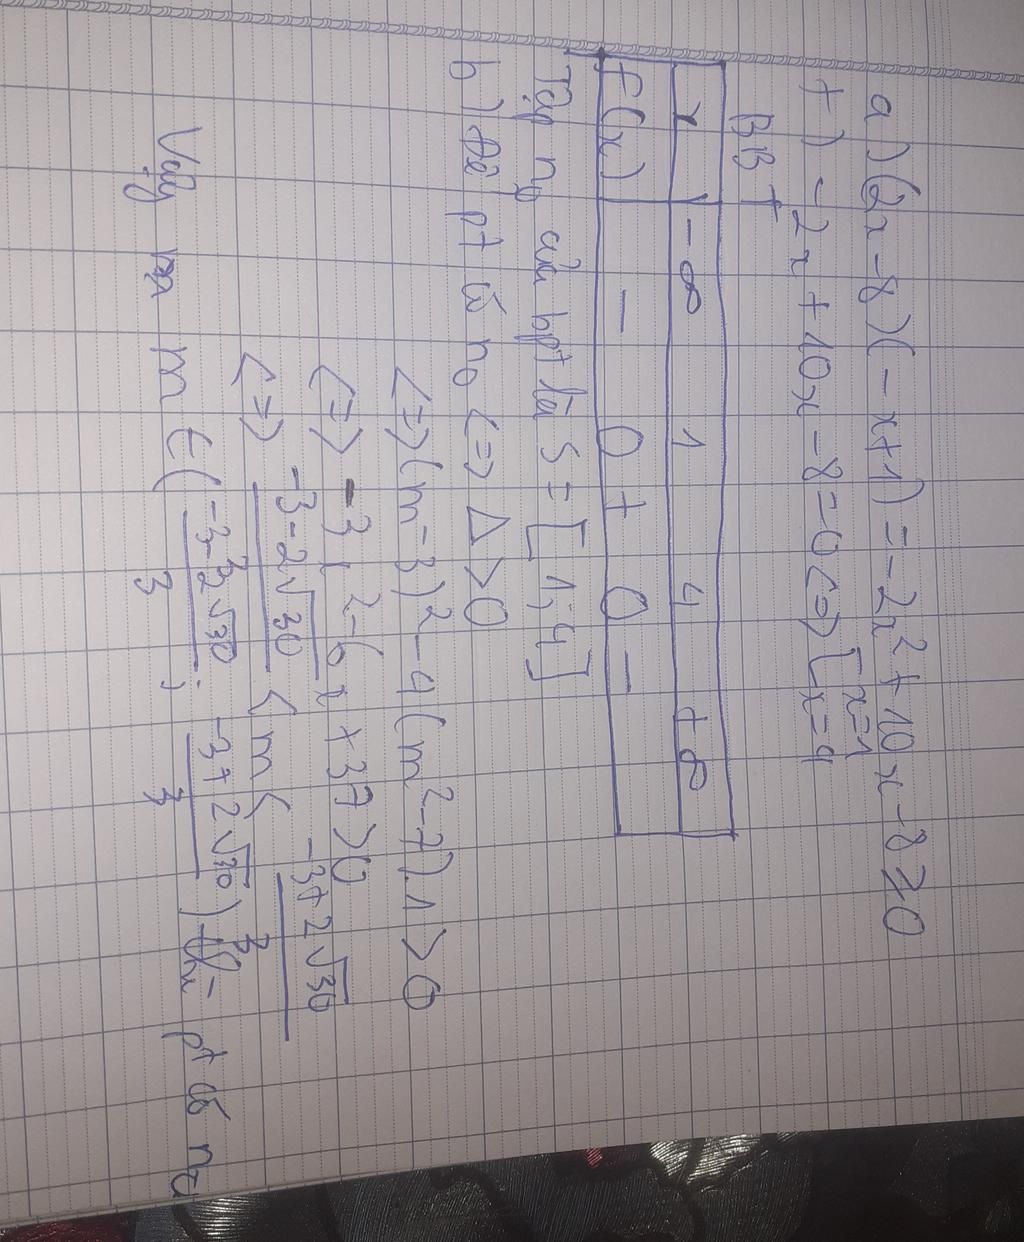 a) (2x-8)(-x+1) = -2x²+10x-8 ≥ 0
+) -2x+10x-8=0 <=> [x=1 x=4
BBT
x | -∞ 1 4 +∞
F(x) | - 0 + 0 -
Tập no của bpt là S = [1;4]
b) Để pt có no <=> Δ>0
<=> (m-3)²-4(m²-7).1>0
<=> -3x²-6x+37>0
<=> (-3-2√30)/3 < m < (-3+2√30)/3
Vậy m ∈ ((-3-2√30)/3 ; (-3+2√30)/3) thì pt có no